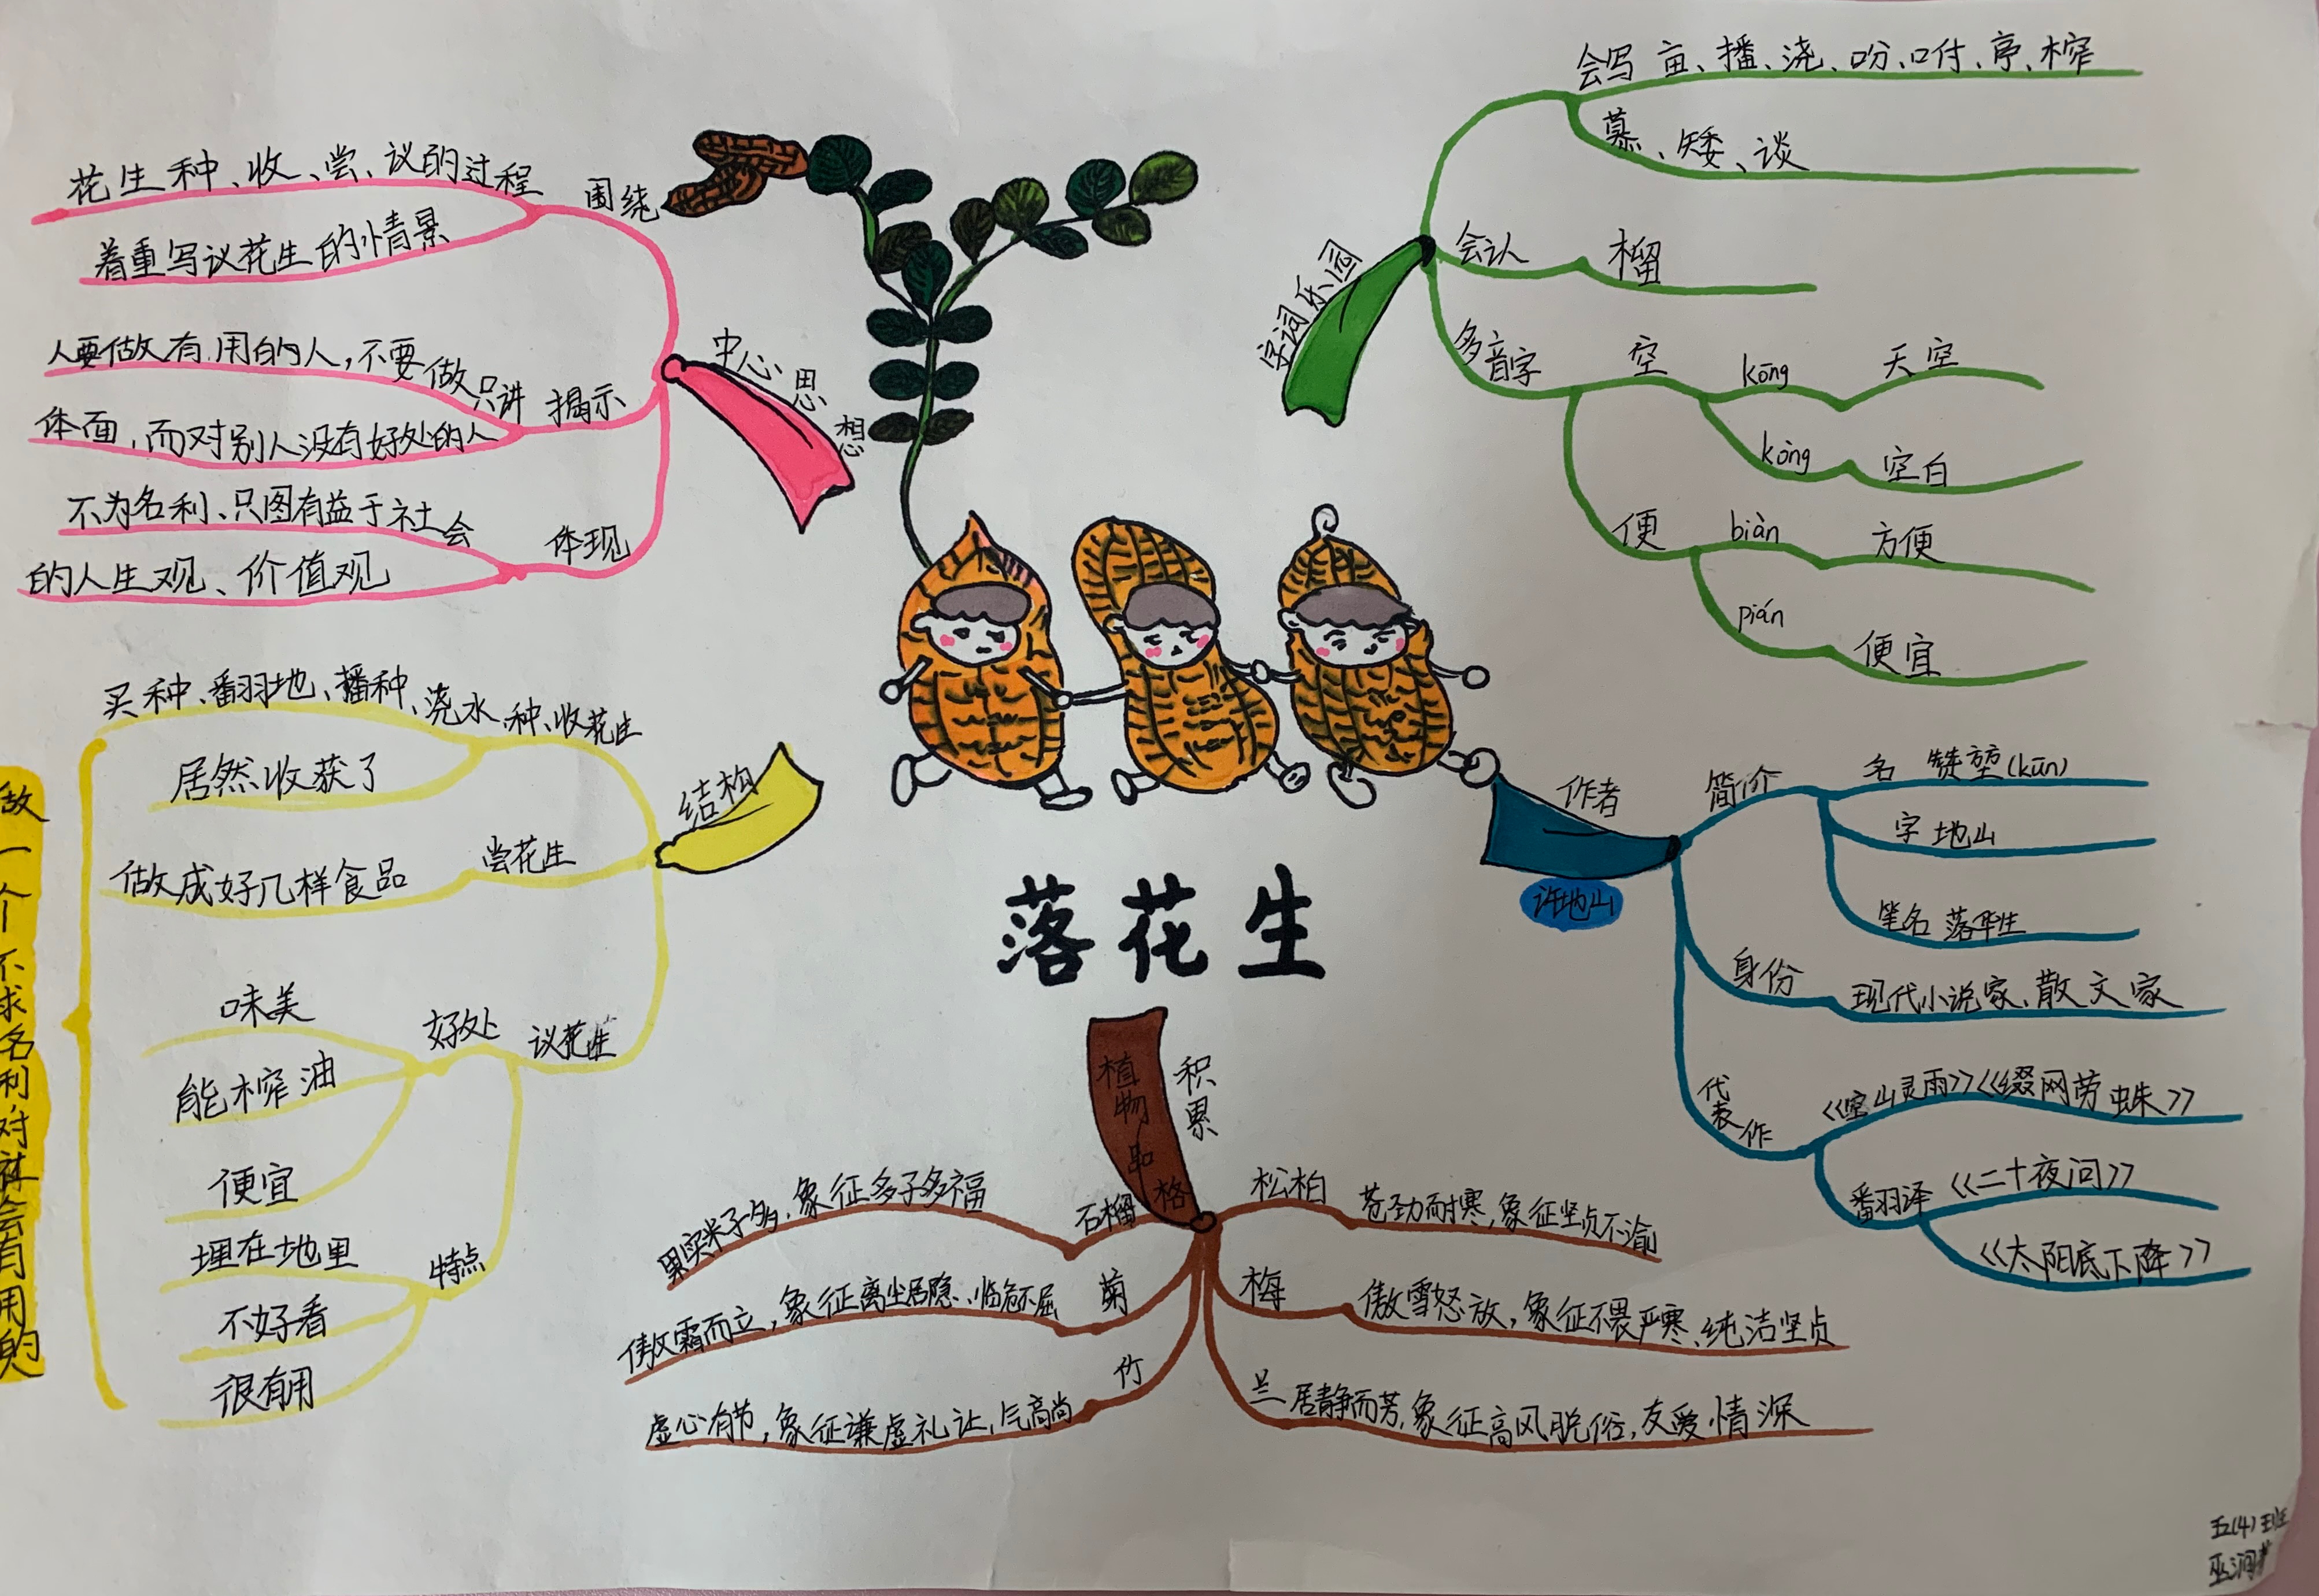 落花生
字词乐园
会写 亩、播、浇、吩、咐、亭、榨
慕、矮、谈
会认 榴
多音字 空 kōng 天空
kòng 空白
便 biàn 方便
pián 便宜
作者
许地山
简介 名 赞堃(kūn)
字 地山
笔名 落华生
身份 现代小说家、散文家
代表作 《空山灵雨》《缀网劳蛛》
翻译 《二十夜问》
《太阳底下降》
积累
植物品格
松柏 苍劲而耐寒,象征坚贞不渝
梅 傲雪怒放,象征不畏严寒、纯洁坚贞
兰 居静而芳,象征高风脱俗,友爱情深
石榴 果实籽多,象征多子多福
菊 傲霜而立,象征离尘居隐、临危不屈
竹 虚心有节,象征谦虚礼让,气高尚
结构
种、收花生 买种、翻地、播种、浇水
居然收获了
尝花生 做成好几样食品
议花生 好处 味美
能榨油
便宜
特点 埋在地里
不好看
很有用
做一个不求名利,对社会有用的
中心思想
围绕 花生种、收、尝、议的过程
着重写议花生的情景
揭示 人要做有用的人,不要做只讲
体面,而对别人没有好处的人
体现 不为名利、只图有益于社会
的人生观、价值观
五(4)班
巫润